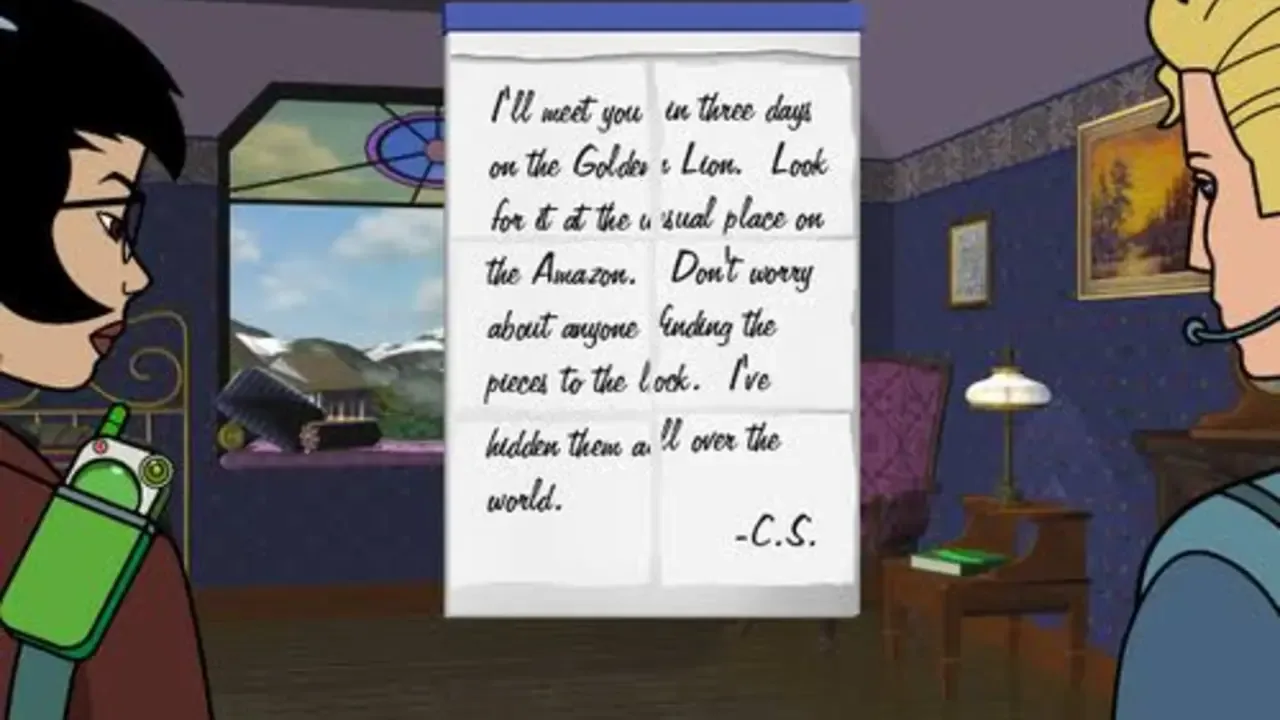 I'll meet you in three days
on the Golden Lion. Look
for it at the usual place on
the Amazon. Don't worry
about anyone finding the
pieces to the lock. I've
hidden them all over the
world.
-C.S.